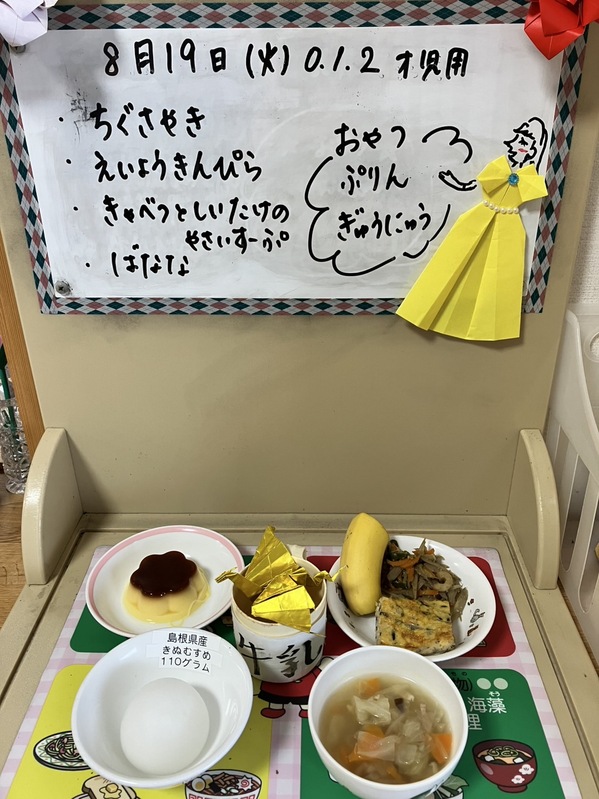 8月19日(火) 0.1.2 才児用
・ちぐさやき
・えいようきんぴら
・きゃべつとしいたけの
やさいすーぷ
・ばなな
おやつ
ぷりん
ぎゅうにゅう
島根県産
きぬむすめ
110グラム
牛乳
物)
海藻
そう
理